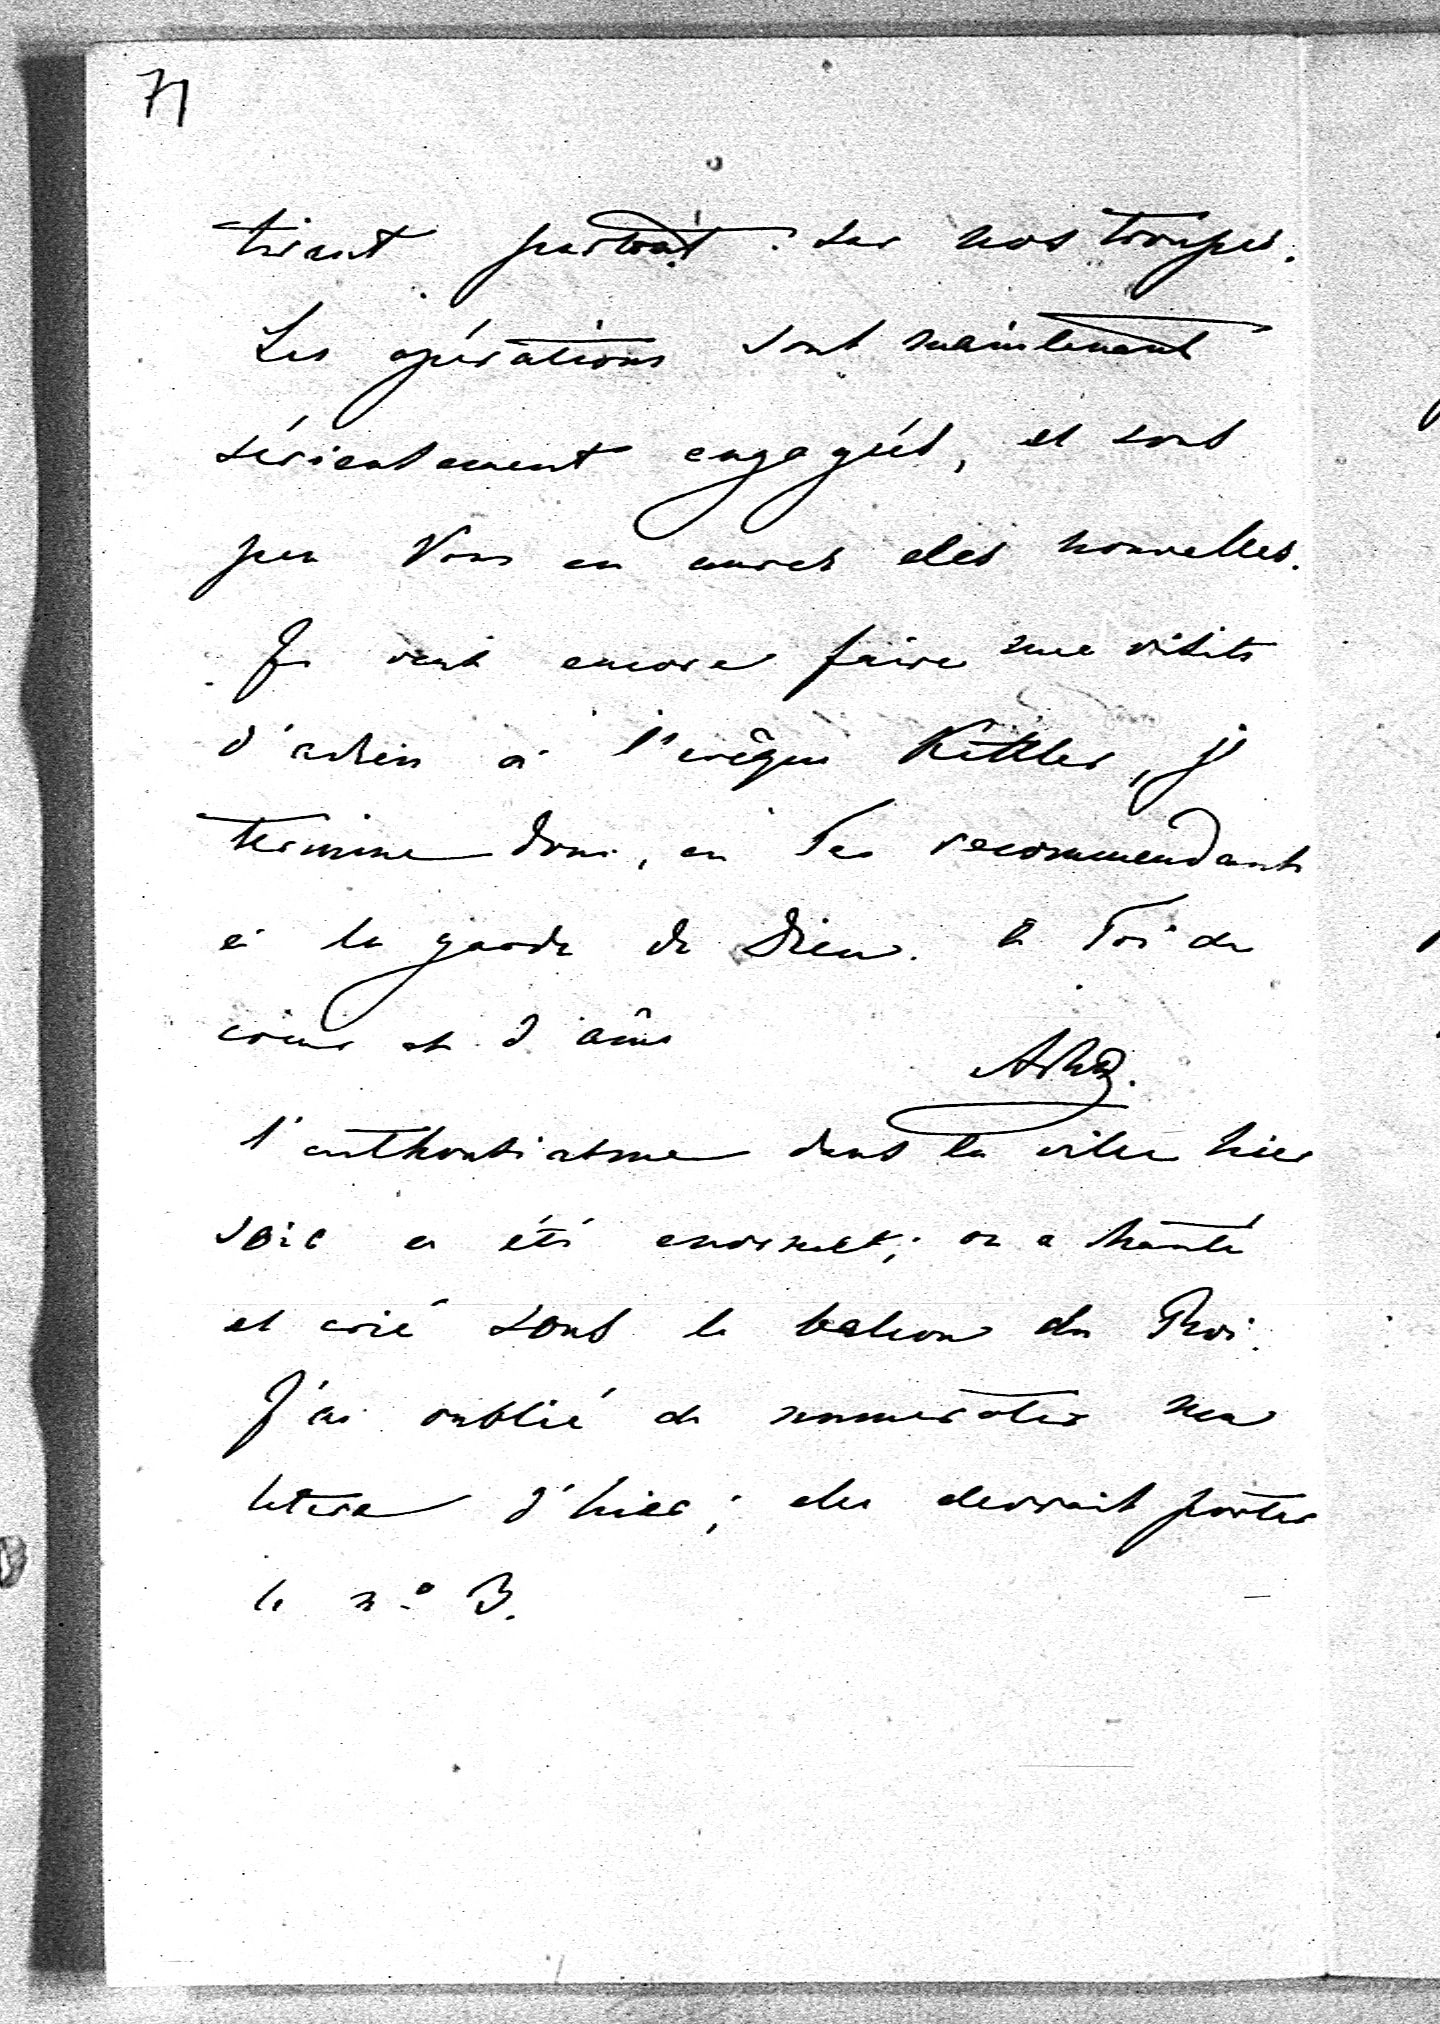 71
tirent partout sur nos troupes.
Les opérations sont maintenant
sérieusement engagées, et sous
peu Vous en aurez des nouvelles.
Je veux encore faire une visite
d'adieu à l'evêque Kettler, je
termine donc, en Te recommendant
à la garde de Dieu. à Toi de
coeur et d'âme
l'enthousiasme dans la ville hier
soir a été enorme; on a chanté
et crié sous le balcon du Roi.
J'ai oublié de numeroter ma
lettre d'hier; elle devrait porter
le nº 3.